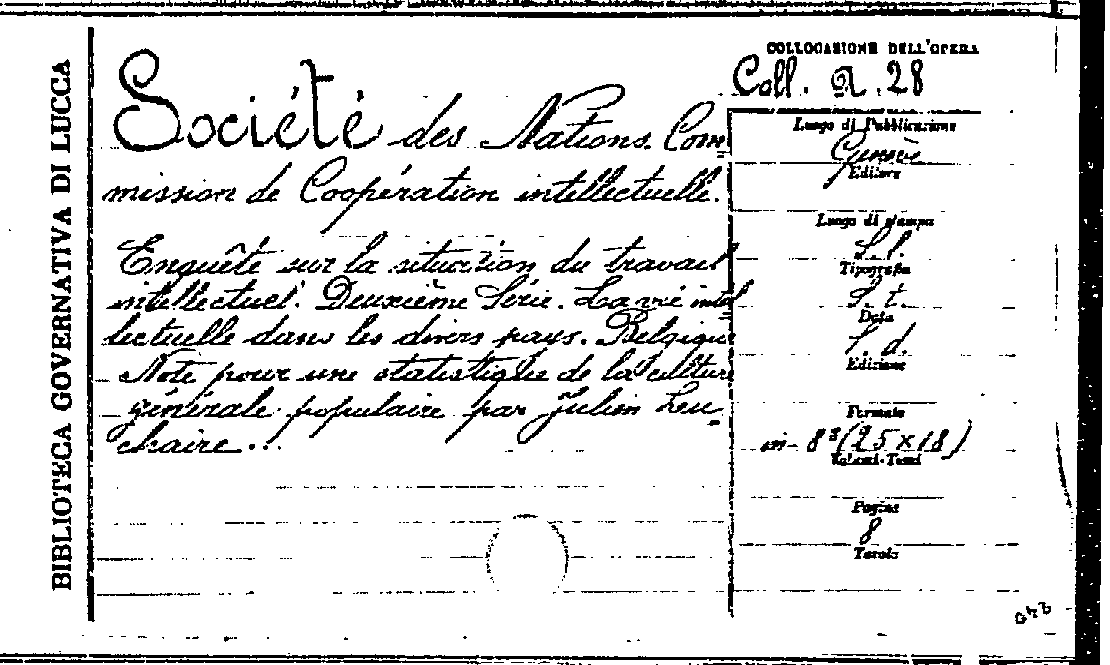 BIBLIOTECA GOVERNATIVA DI LUCCA
Société des Nations. Com
mission de Coopération intellectuelle.
Enquête sur la situation du travail
intellectuel. Deuxième Série. La vie intel
lectuelle dans les divers pays. Belgique
Note pour une statistique de la culture
générale populaire par Julien Leu-
chaire...
COLLOCAZIONE DELL'OPERA
Coll. A. 28
Luogo di Pubblicazione
Genève
Editore
Luogo di stampa
S. l.
Tipografia
S. t.
Data
S. d.
Edizione
Formato
in-8° (25x18)
Volumi-Tomi
Pagine
8
Tavole